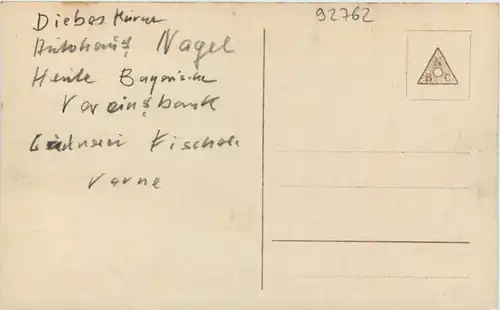 Diebesturm
92762
Autohaus Nagel
Heute Bayerische
Vereinsbank
Gärtnerei Fischer
vorne
N
B C